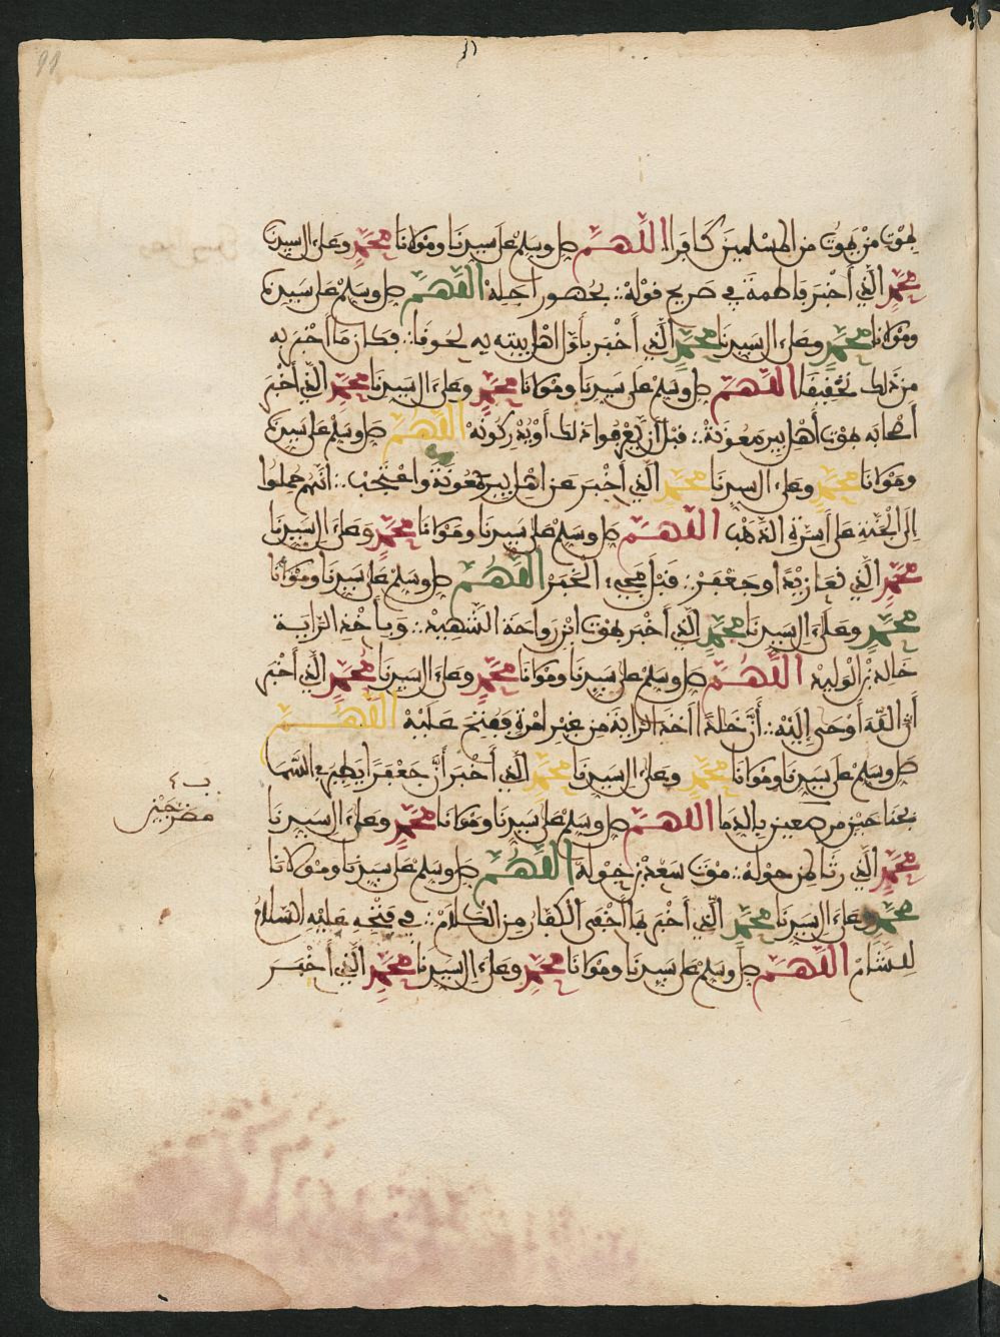 بموت من يموت من المسلمين كافرا اللهم صل وسلم على سيدنا ومولانا محمد وعلى ال سيدنا
محمد الذي أخبر فاطمة في صريح قوله بحضور أجله اللهم صل وسلم على سيدنا
ومولانا محمد وعلى ال سيدنا محمد الذي أخبر بأول اهل بيته به لحوقا فكان ما أخبر به
من ذلك تحقيقا اللهم صل وسلم على سيدنا ومولانا محمد وعلى ال سيدنا محمد الذي أخبر
أصحابه بموت أهل بير معونة قبل أن يعرفوا ذلك أو يدركونه اللهم صل وسلم على سيدنا
ومولانا محمد وعلى ال سيدنا محمد الذي أخبر عن اهل بير معونة واعتجب انهم حملوا
إلى الجنة على أسرة الذهب اللهم صل وسلم على سيدنا ومولانا محمد وعلى ال سيدنا
محمد الذي نعا زيدا وجعفر قبل مجيء الخبر اللهم صل وسلم على سيدنا ومولانا
محمد وعلى ال سيدنا محمد الذي أخبر بموت ابن رواحة الشهيد وبأخذ الراية
خالد بن الوليد اللهم صل وسلم على سيدنا ومولانا محمد وعلى ال سيدنا محمد الذي أخبر
أن الله أوحى إليه أن خالدا أخذ الراية من غير امرة ففتح عليه اللهم
صل وسلم على سيدنا ومولانا محمد وعلى ال سيدنا محمد الذي أخبر أن جعفرا يطير في السما
بجناحين بالدما اللهم صل وسلم على سيدنا ومولانا محمد وعلى ال سيدنا
محمد الذي رثا لمن حوله موت سعد بن خولة اللهم صل وسلم على سيدنا ومولانا
محمد وعلى ال سيدنا محمد الذي أخبر بما أخفى الكفار من الكلام في فتحه عليه السلام
للشام اللهم صل وسلم على سيدنا ومولانا محمد وعلى ال سيدنا محمد الذي أخبر